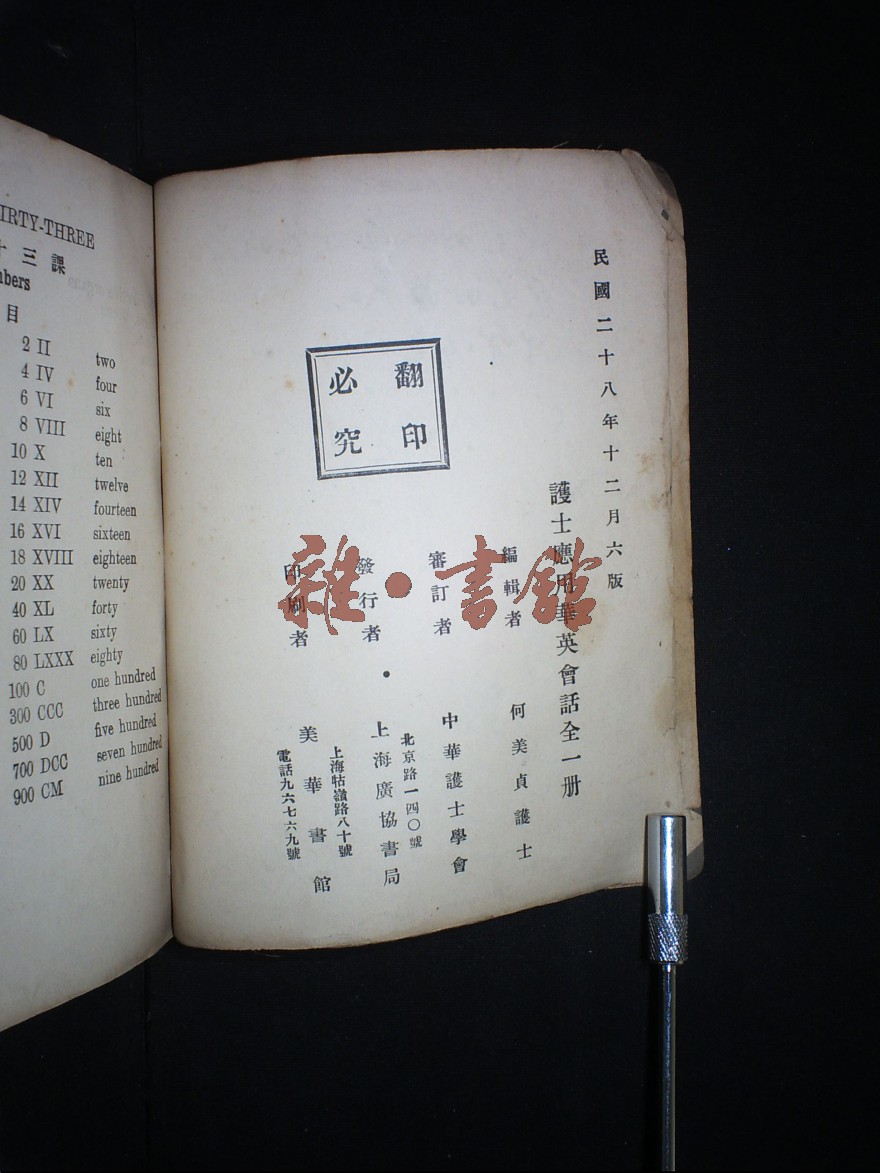 IRTY-THREE
十三課
bers
目
2 II two
4 IV four
6 VI six
8 VIII eight
10 X ten
12 XII twelve
14 XIV fourteen
16 XVI sixteen
18 XVIII eighteen
20 XX twenty
40 XL forty
60 LX sixty
80 LXXX eighty
100 C one hundred
300 CCC three hundred
500 D five hundred
700 DCC seven hundred
900 CM nine hundred
民國二十八年十二月六版
護士應用華英會話全一册
編輯者 何美貞護士
審訂者 中華護士學會
北京路一四〇號
發行者 上海廣協書局
上海牯嶺路八十號
印刷者 美華書館
電話九六七六九號
翻印
必究
雜·書館